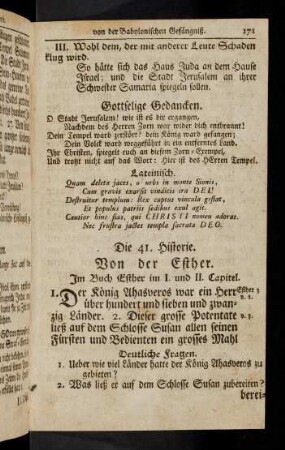 von der Babylonischen Gefängniß. 171
III. Wohl dem, der mit anderer Leute Schaden
klug wird.
So hätte sich das Haus Juda an dem Hause
Israel; und die Stadt Jerusalem an ihrer
Schwester Samaria spiegeln sollen.
Gottselige Gedancken.
O Stadt Jerusalem! wie ist es dir ergangen,
Nachdem des Herren Zorn war wider dich entbrannt!
Dein Tempel ward zerstört? dein König ward gefangen;
Dein Volck ward weggeführt in ein entferntes Land.
Ihr Christen, spiegelt euch an diesem Zorn-Exempel,
Und trotzt nicht auf das Wort: Hier ist des HErren Tempel.
Lateinisch.
Quam deleta jaces, o urbs in monte Sionis,
Cum gravis exarsit vindicis ira DEI!
Destruitur templum: Rex captus vincula gestat,
Et populus patriis sedibus exul agit.
Cautior hinc fias, qui CHRISTI nomen adoras.
Nec frustra jactes templa sacrata DEO.
Die 41. Historie.
Von der Esther.
Im Buch Esther im I. und II. Capitel.
1. Der König Ahasveros war ein Herr
über hundert und sieben und zwan-
zig Länder. 2. Dieser grosse Potentate
ließ auf dem Schlosse Susan allen seinen
Fürsten und Bedienten ein grosses Mahl
Esther
v. 1.
v. 3.
Deutliche Fragen.
1. Ueber wie viel Länder hatte der König Ahasveros zu
gebieten?
2. Was ließ er auf dem Schlosse Susan zubereiten?
berei-